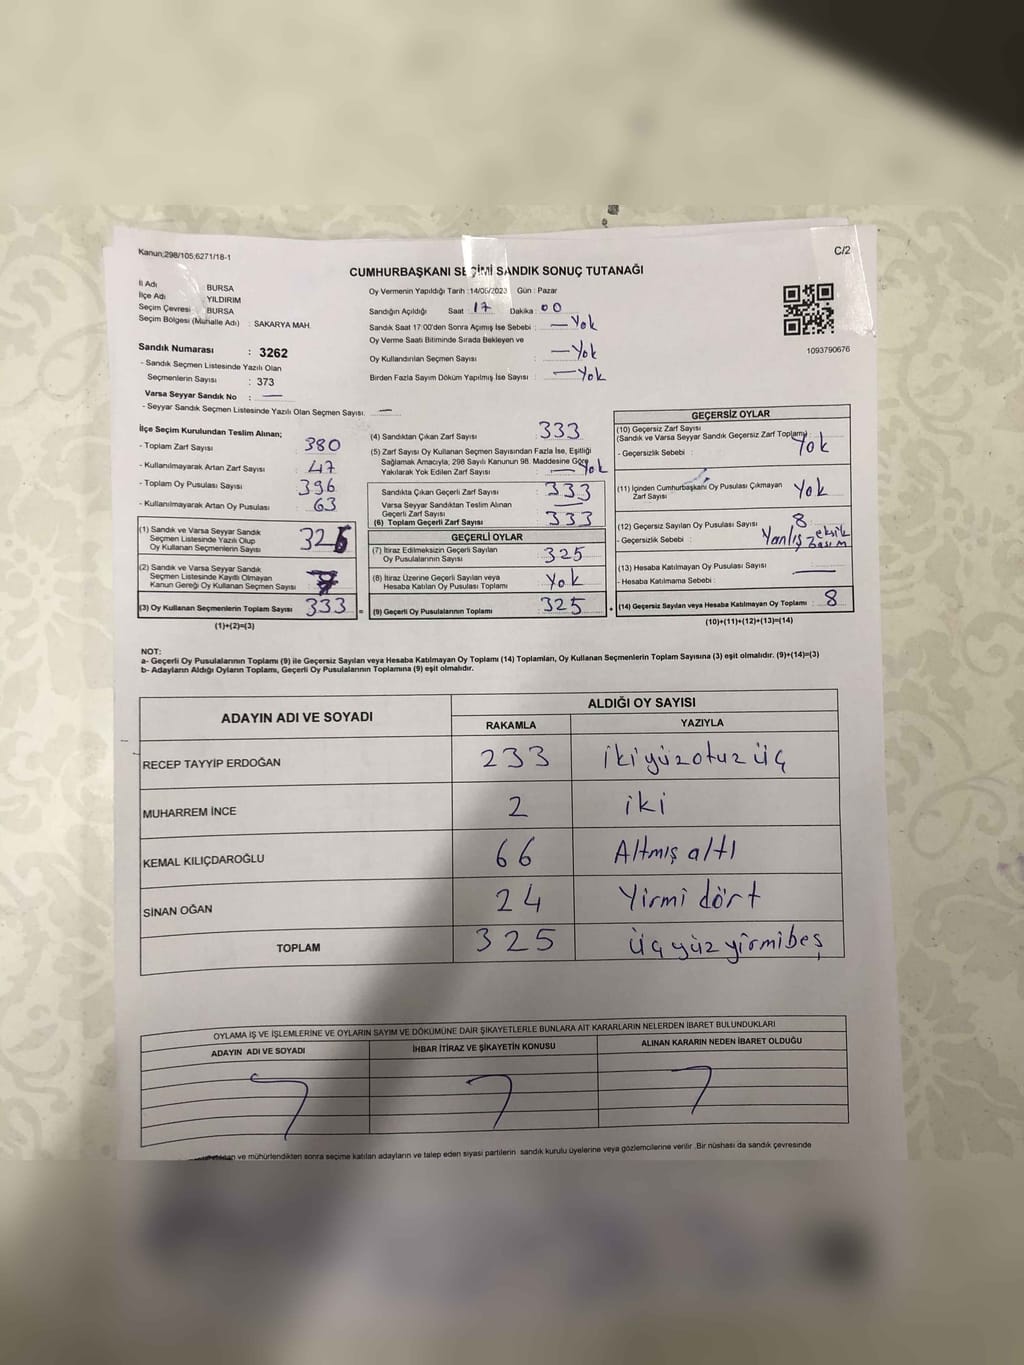 Kanun;298/105;6271/18-1
C/2
CUMHURBAŞKANI SEÇİMİ SANDIK SONUÇ TUTANAĞI
İl Adı BURSA
İlçe Adı YILDIRIM
Seçim Çevresi BURSA
Seçim Bölgesi (Mahalle Adı) : SAKARYA MAH.
Oy Vermenin Yapıldığı Tarih :14/05/2023 Gün : Pazar
Sandığın Açıldığı Saat : 17 Dakika : 00
Sandık Saat 17:00'den Sonra Açımış İse Sebebi : — Yok
Oy Verme Saati Bitiminde Sırada Bekleyen ve
Oy Kullandırılan Seçmen Sayısı : — Yok
Birden Fazla Sayım Döküm Yapılmış İse Sayısı : — Yok
1093790676
Sandık Numarası : 3262
- Sandık Seçmen Listesinde Yazılı Olan
Seçmenlerin Sayısı : 373
Varsa Seyyar Sandık No : —
- Seyyar Sandık Seçmen Listesinde Yazılı Olan Seçmen Sayısı. —
İlçe Seçim Kurulundan Teslim Alınan;
- Toplam Zarf Sayısı : 380
- Kullanılmayarak Artan Zarf Sayısı : 47
- Toplam Oy Pusulası Sayısı : 396
- Kullanılmayarak Artan Oy Pusulası : 63
(1) Sandık ve Varsa Seyyar Sandık
Seçmen Listesinde Yazılı Olup
Oy Kullanan Seçmenlerin Sayısı
(2) Sandık ve Varsa Seyyar Sandık
Seçmen Listesinde Kayıtlı Olmayan
Kanun Gereği Oy Kullanan Seçmen Sayısı
(3) Oy Kullanan Seçmenlerin Toplam Sayısı 333
(1)+(2)=(3)
(4) Sandıktan Çıkan Zarf Sayısı : 333
(5) Zarf Sayısı Oy Kullanan Seçmen Sayısından Fazla İse, Eşitliği
Sağlamak Amacıyla, 298 Sayılı Kanunun 98. Maddesine Göre
Yakılarak Yok Edilen Zarf Sayısı : — Yok
Sandıkta Çıkan Geçerli Zarf Sayısı : 333
Varsa Seyyar Sandıktan Teslim Alınan
Geçerli Zarf Sayısı : —
(6) Toplam Geçerli Zarf Sayısı : 333
GEÇERLİ OYLAR
(7) İtiraz Edilmeksizin Geçerli Sayılan
Oy Pusulalarının Sayısı : 325
(8) İtiraz Üzerine Geçerli Sayılan veya
Hesaba Katılan Oy Pusulası Toplamı : Yok
(9) Geçerli Oy Pusulalarının Toplamı : 325
GEÇERSİZ OYLAR
(10) Geçersiz Zarf Sayısı
(Sandık ve Varsa Seyyar Sandık Geçersiz Zarf Toplamı)
- Geçersizlik Sebebi : Yok
(11) İçinden Cumhurbaşkanı Oy Pusulası Çıkmayan
Zarf Sayısı Yok
(12) Geçersiz Sayılan Oy Pusulası Sayısı : 8
- Geçersizlik Sebebi : Yanlış eksik
(13) Hesaba Katılmayan Oy Pusulası Sayısı : —
- Hesaba Katılmama Sebebi :
(14) Geçersiz Sayılan veya Hesaba Katılmayan Oy Toplamı : 8
(10)+(11)+(12)+(13)=(14)
NOT:
a- Geçerli Oy Pusulalarının Toplamı (9) ile Geçersiz Sayılan veya Hesaba Katılmayan Oy Toplamı (14) Toplamları, Oy Kullanan Seçmenlerin Toplam Sayısına (3) eşit olmalıdır. (9)+(14)=(3)
b- Adayların Aldığı Oyların Toplamı, Geçerli Oy Pusulalarının Toplamına (9) eşit olmalıdır.
ADAYIN ADI VE SOYADI ALDIĞI OY SAYISI
RAKAMLA YAZIYLA
RECEP TAYYİP ERDOĞAN 233 ikiyüzotuz üç
MUHARREM İNCE 2 iki
KEMAL KILIÇDAROĞLU 66 Altmış altı
SİNAN OĞAN 24 Yirmi dört
TOPLAM 325 üçyüz yirmibeş
OYLAMA İŞ VE İŞLEMLERİNE VE OYLARIN SAYIM VE DÖKÜMÜNE DAİR ŞİKAYETLERLE BUNLARA AİT KARARLARIN NELERDEN İBARET BULUNDUKLARI
ADAYIN ADI VE SOYADI İHBAR İTİRAZ VE ŞİKAYETİN KONUSU ALINAN KARARIN NEDEN İBARET OLDUĞU
ve mühürlendikten sonra seçime katılan adayların ve talep eden siyasi partilerin sandık kurulu üyelerine veya gözlemcilerine verilir. Bir nüshası da sandık çevresinde